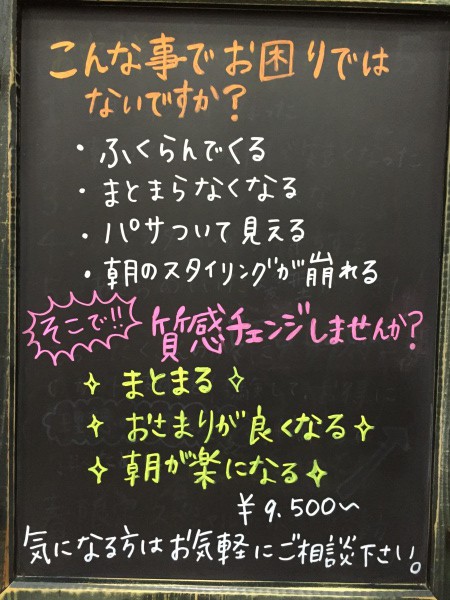 こんな事でお困りでは
ないですか?
・ふくらんでくる
・まとまらなくなる
・パサついて見える
・朝のスタイリングが崩れる
そこで!! 質感チェンジしませんか?
✧ まとまる ✧
✧ おさまりが良くなる ✧
✧ 朝が楽になる ✧
¥9.500〜
気になる方はお気軽にご相談下さい。